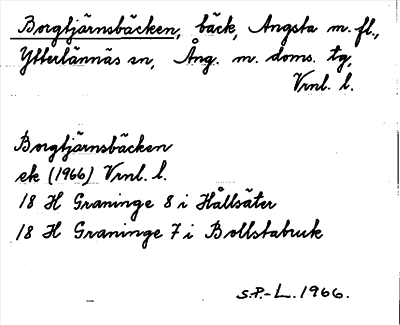 Borgtjärnsbäcken, bäck, Angsta m. fl.,
Ytterlännäs sn, Ång. m. doms. tg,
Vrnl. l.
Borgtjärnsbäcken
ek (1966) Vrnl. l.
18 H Graninge 8 i Hållsäter
18 H Graninge 7 i Bollstabruk
S.P.-L. 1966.